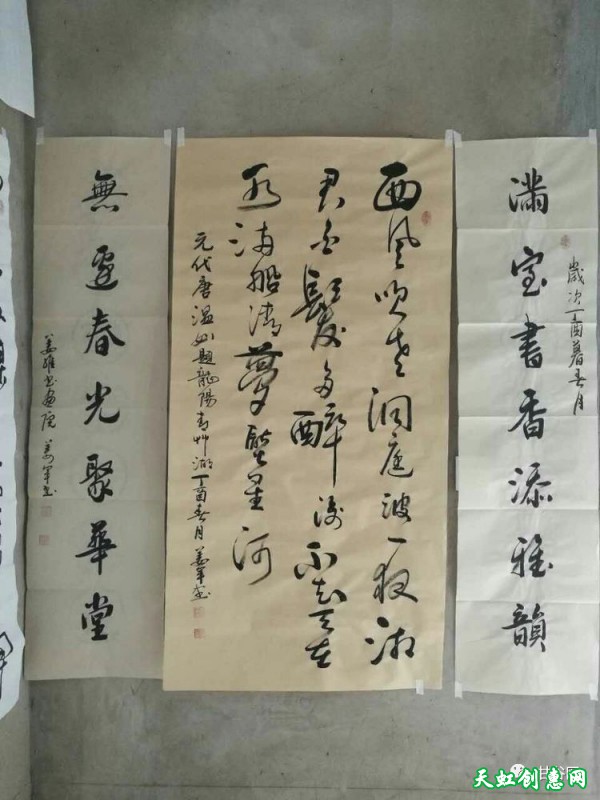 滿室書香添雅韻
歲次丁酉暮春月
西風吹老洞庭波一夜湘
君白髮多醉後不知天在
水滿船清夢壓星河
元代唐温如題龍陽青艸湖丁酉春月姜軍書
無邊春光聚華堂
姜維书画院姜軍书
天虹创惠网